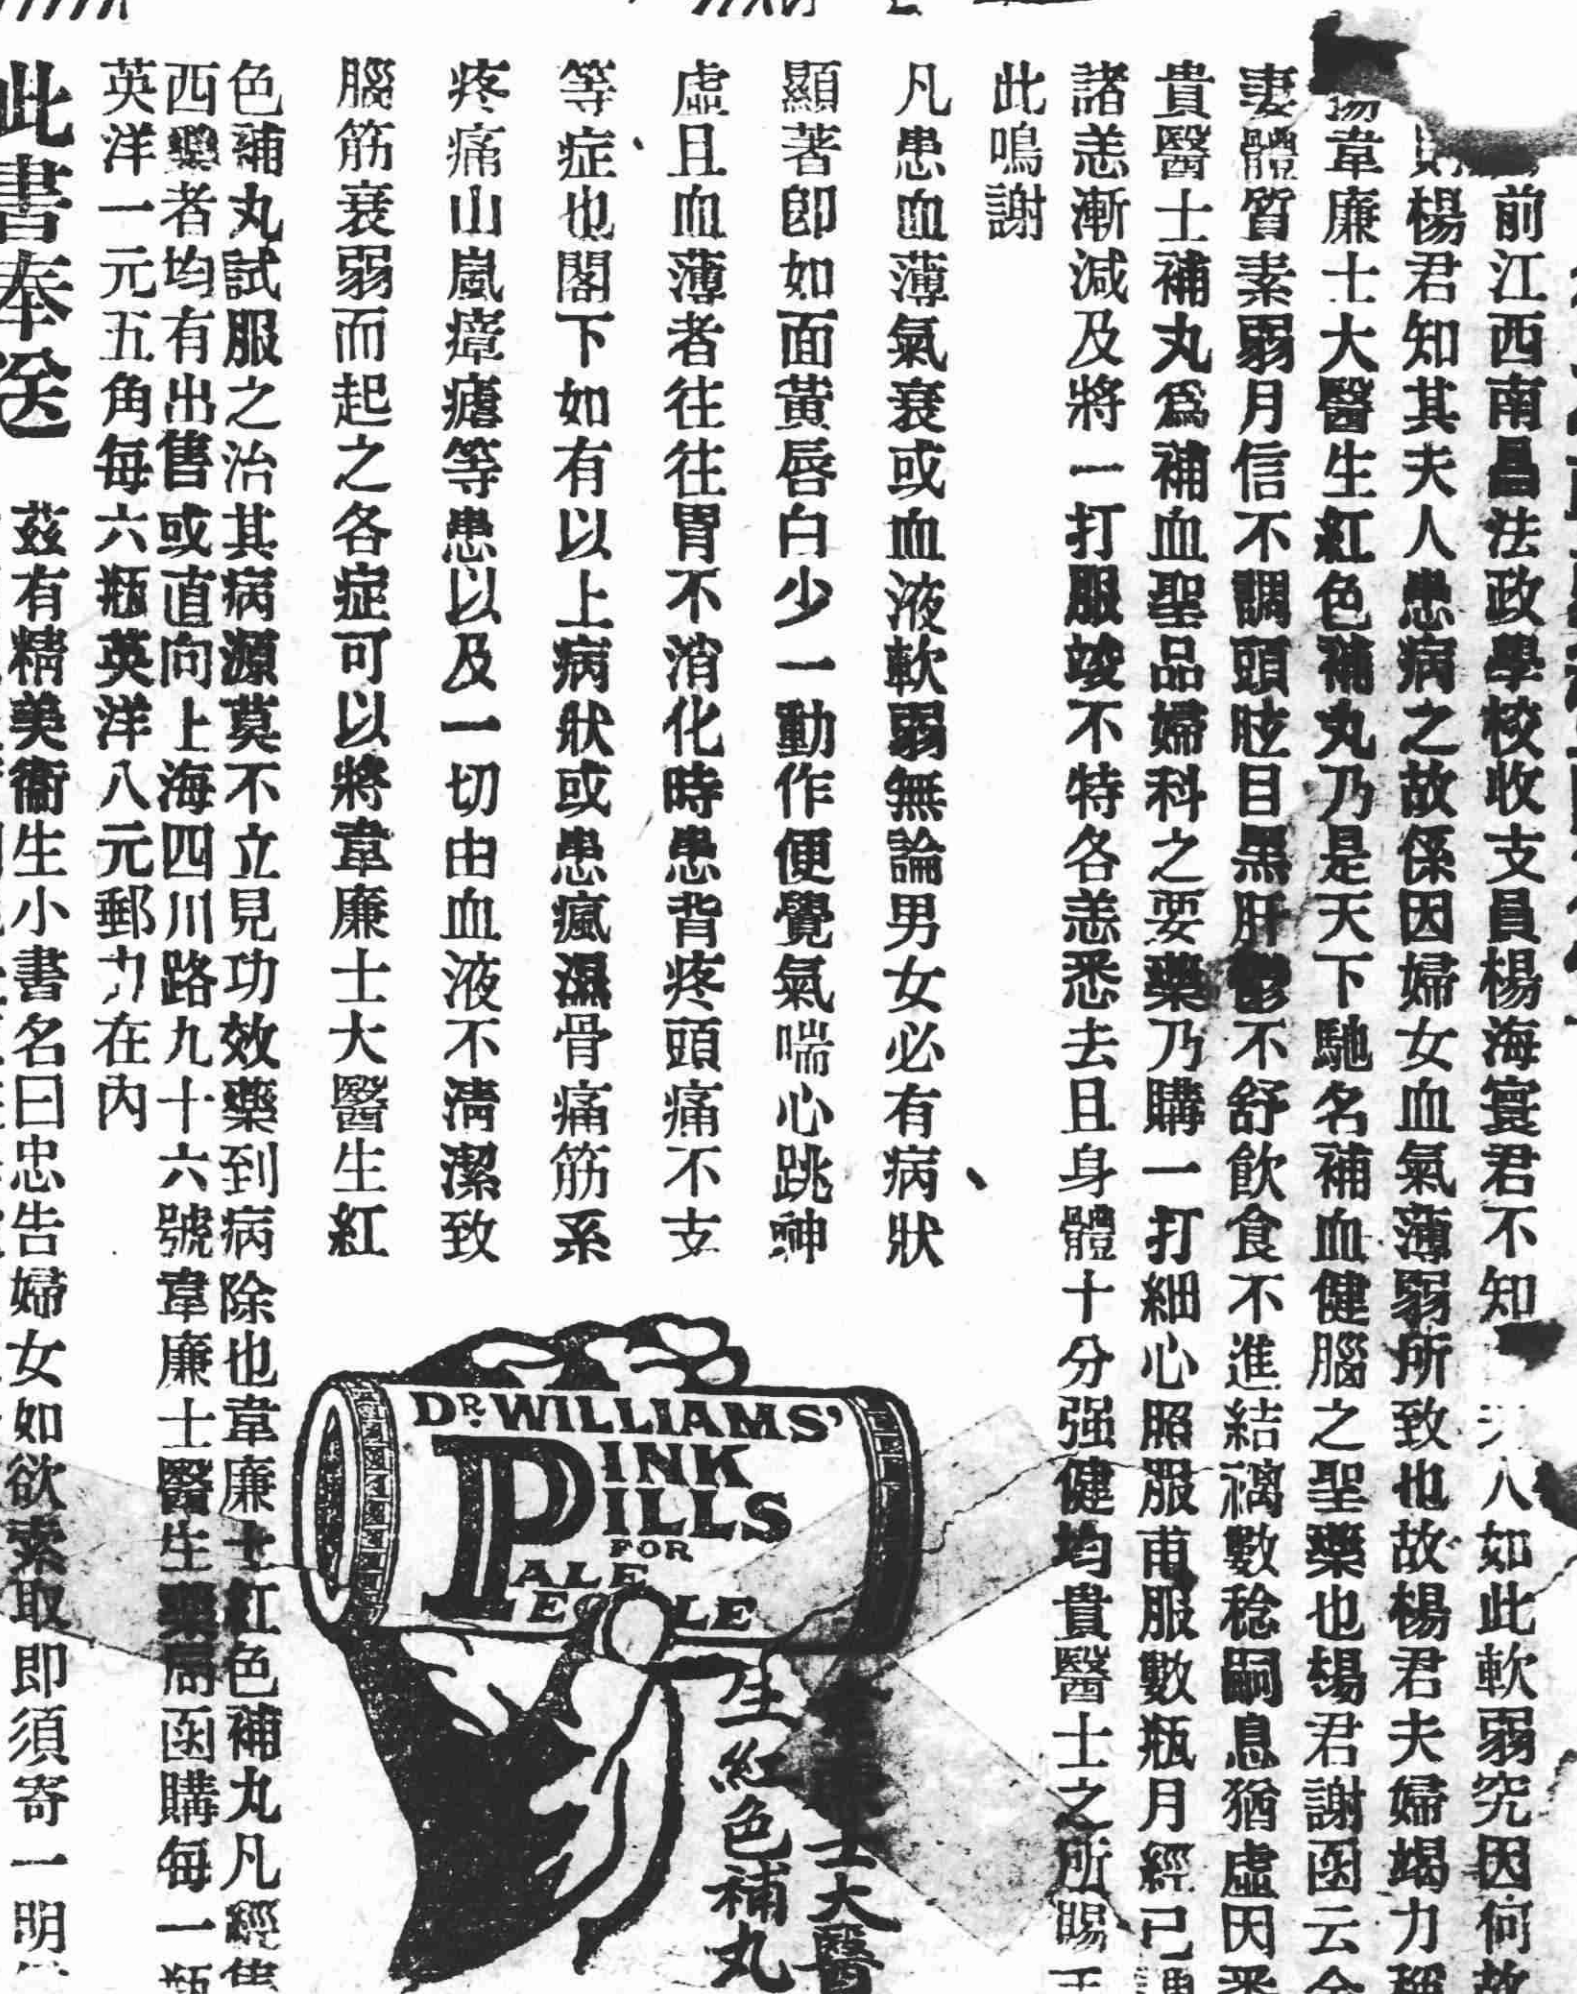 前江西南昌法政學校收支員楊海寰君不知 人如此軟弱究因何故
楊君知其夫人患病之故係因婦女血氣薄弱所致也故楊君夫婦竭力稱
揚韋廉士大醫生紅色補丸乃是天下馳名補血健腦之聖藥也楊君謝函云余
妻體質素弱月信不調頭眩目黑肝鬱不舒飲食不進結褵數稔嗣息猶虛因悉
貴醫士補丸爲補血聖品婦科之要藥乃購一打細心照服甫服數瓶月經已
諸恙漸減及將一打服竣不特各恙悉去且身體十分强健均貴醫士之所賜
此鳴謝
凡患血薄氣衰或血液軟弱無論男女必有病狀
顯著卽如面黃唇白少一動作便覺氣喘心跳神
虛且血薄者往往胃不消化時患背疼頭痛不支
等症也閣下如有以上病狀或患瘋濕骨痛筋系
疼痛山嵐瘴瘧等患以及一切由血液不淸潔致
腦筋衰弱而起之各症可以將韋廉士大醫生紅
色補丸試服之治其病源莫不立見功效藥到病除也韋廉士紅色補丸凡經售
西藥者均有出售或直向上海四川路九十六號韋廉士醫生藥局函購每一瓶
英洋一元五角每六瓶英洋八元郵力在內
此書奉送
茲有精美衞生小書名曰忠告婦女如欲索取即須寄一明
DR. WILLIAMS'
PINK
PILLS
FOR
PALE
PEOPLE
士大醫
生紅色補丸